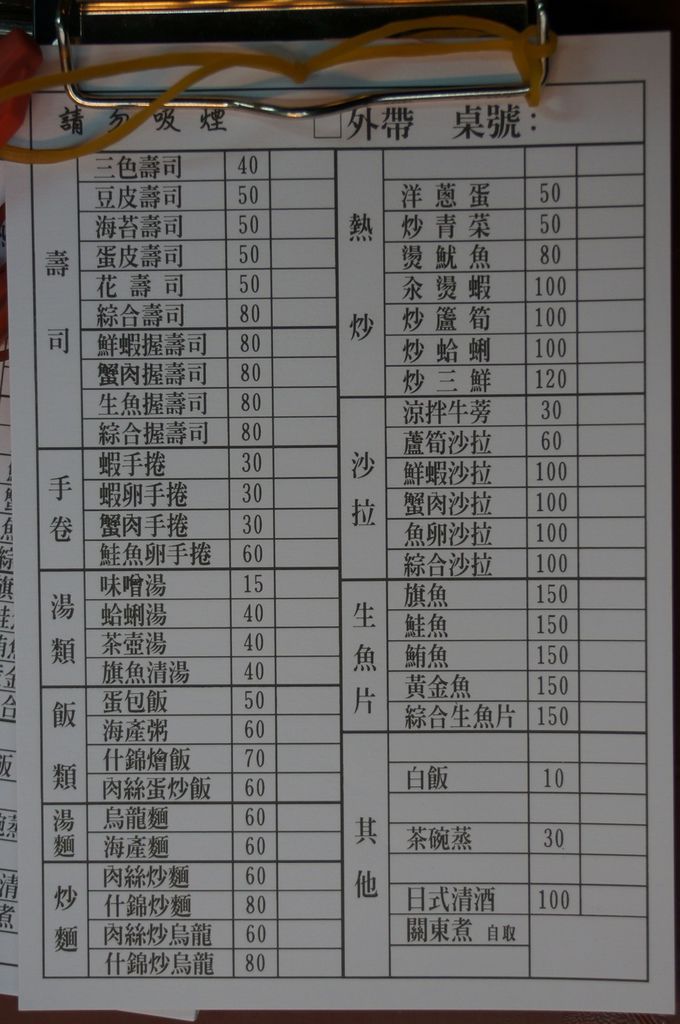 請勿吸煙
□外帶 桌號：
壽司
三色壽司 40
豆皮壽司 50
海苔壽司 50
蛋皮壽司 50
花壽司 50
綜合壽司 80
鮮蝦握壽司 80
蟹肉握壽司 80
生魚握壽司 80
綜合握壽司 80
手卷
蝦手捲 30
蝦卵手捲 30
蟹肉手捲 30
鮭魚卵手捲 60
湯類
味噌湯 15
蛤蜊湯 40
茶壺湯 40
旗魚清湯 40
飯類
蛋包飯 50
海產粥 60
什錦燴飯 70
肉絲蛋炒飯 60
湯麵
烏龍麵 60
海產麵 60
炒麵
肉絲炒麵 60
什錦炒麵 80
肉絲炒烏龍 60
什錦炒烏龍 80
熱炒
洋蔥蛋 50
炒青菜 50
燙魷魚 80
汆燙蝦 100
炒蘆筍 100
炒蛤蜊 100
炒三鮮 120
沙拉
涼拌牛蒡 30
蘆筍沙拉 60
鮮蝦沙拉 100
蟹肉沙拉 100
魚卵沙拉 100
綜合沙拉 100
生魚片
旗魚 150
鮭魚 150
鮪魚 150
黃金魚 150
綜合生魚片 150
其他
白飯 10
茶碗蒸 30
日式清酒 100
關東煮 自取